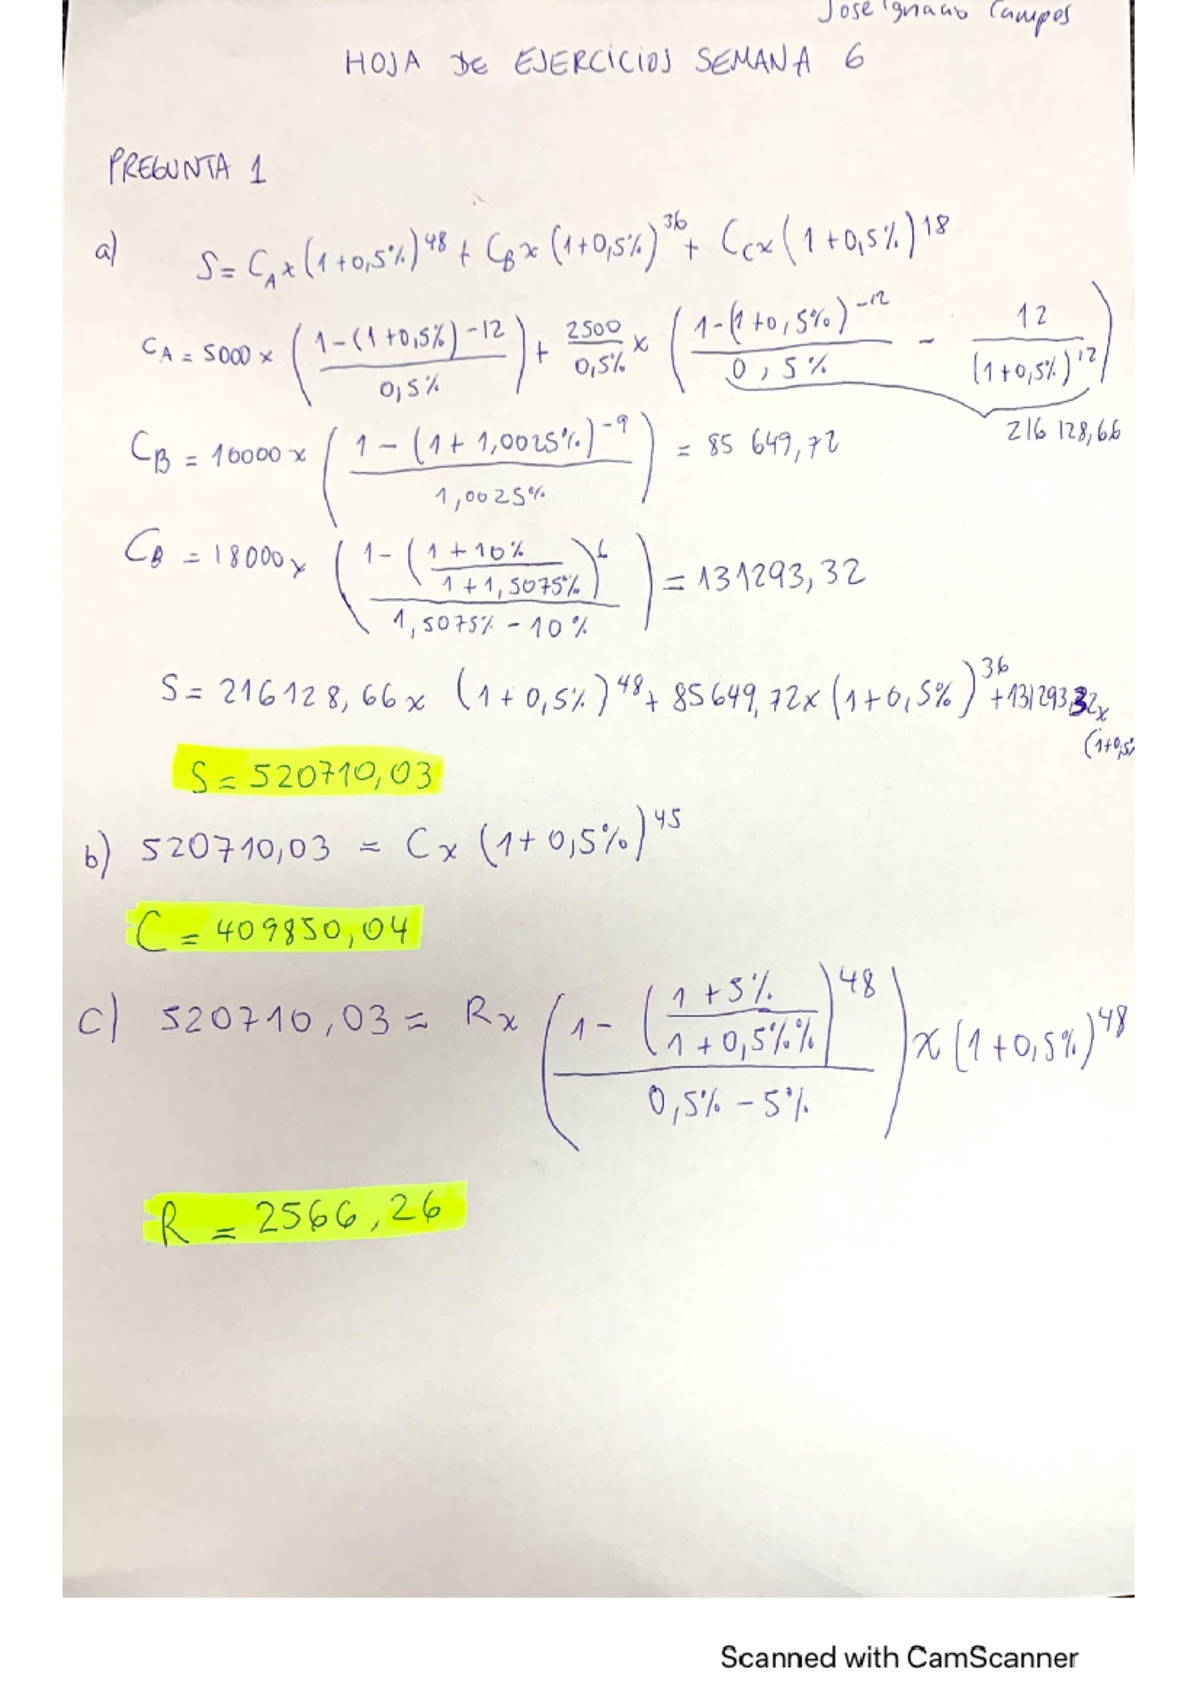 Jose Ignacio Campos
HOJA DE EJERCICIOS SEMANA 6
PREGUNTA 1
a) S = C_A x (1+0,5%)^48 + C_B x (1+0,5%)^36 + C_C x (1+0,5%)^18
C_A = 5000 x ( (1-(1+0,5%)^-12) / 0,5% ) + 2500 / 0,5% x ( (1-(1+0,5%)^-12) / 0,5% - 12 / (1+0,5%)^12 )
216 128,66
C_B = 10000 x ( (1-(1+1,0025%)^-9) / 1,0025% ) = 85 649,72
C_B = 18000 x ( (1-( (1+10%) / (1+1,5075%) )^6) / (1,5075% - 10%) ) = 131293,32
S = 216128,66 x (1+0,5%)^48 + 85649,72 x (1+0,5%)^36 + 131293,32 x
(1+0,5%
S = 520710,03
b) 520710,03 = C x (1+0,5%)^45
C = 409850,04
c) 520710,03 = R x ( (1-( (1+5%) / (1+0,5%%) )^48) / (0,5% - 5%) ) x (1+0,5%)^48
R = 2566,26
Scanned with CamScanner